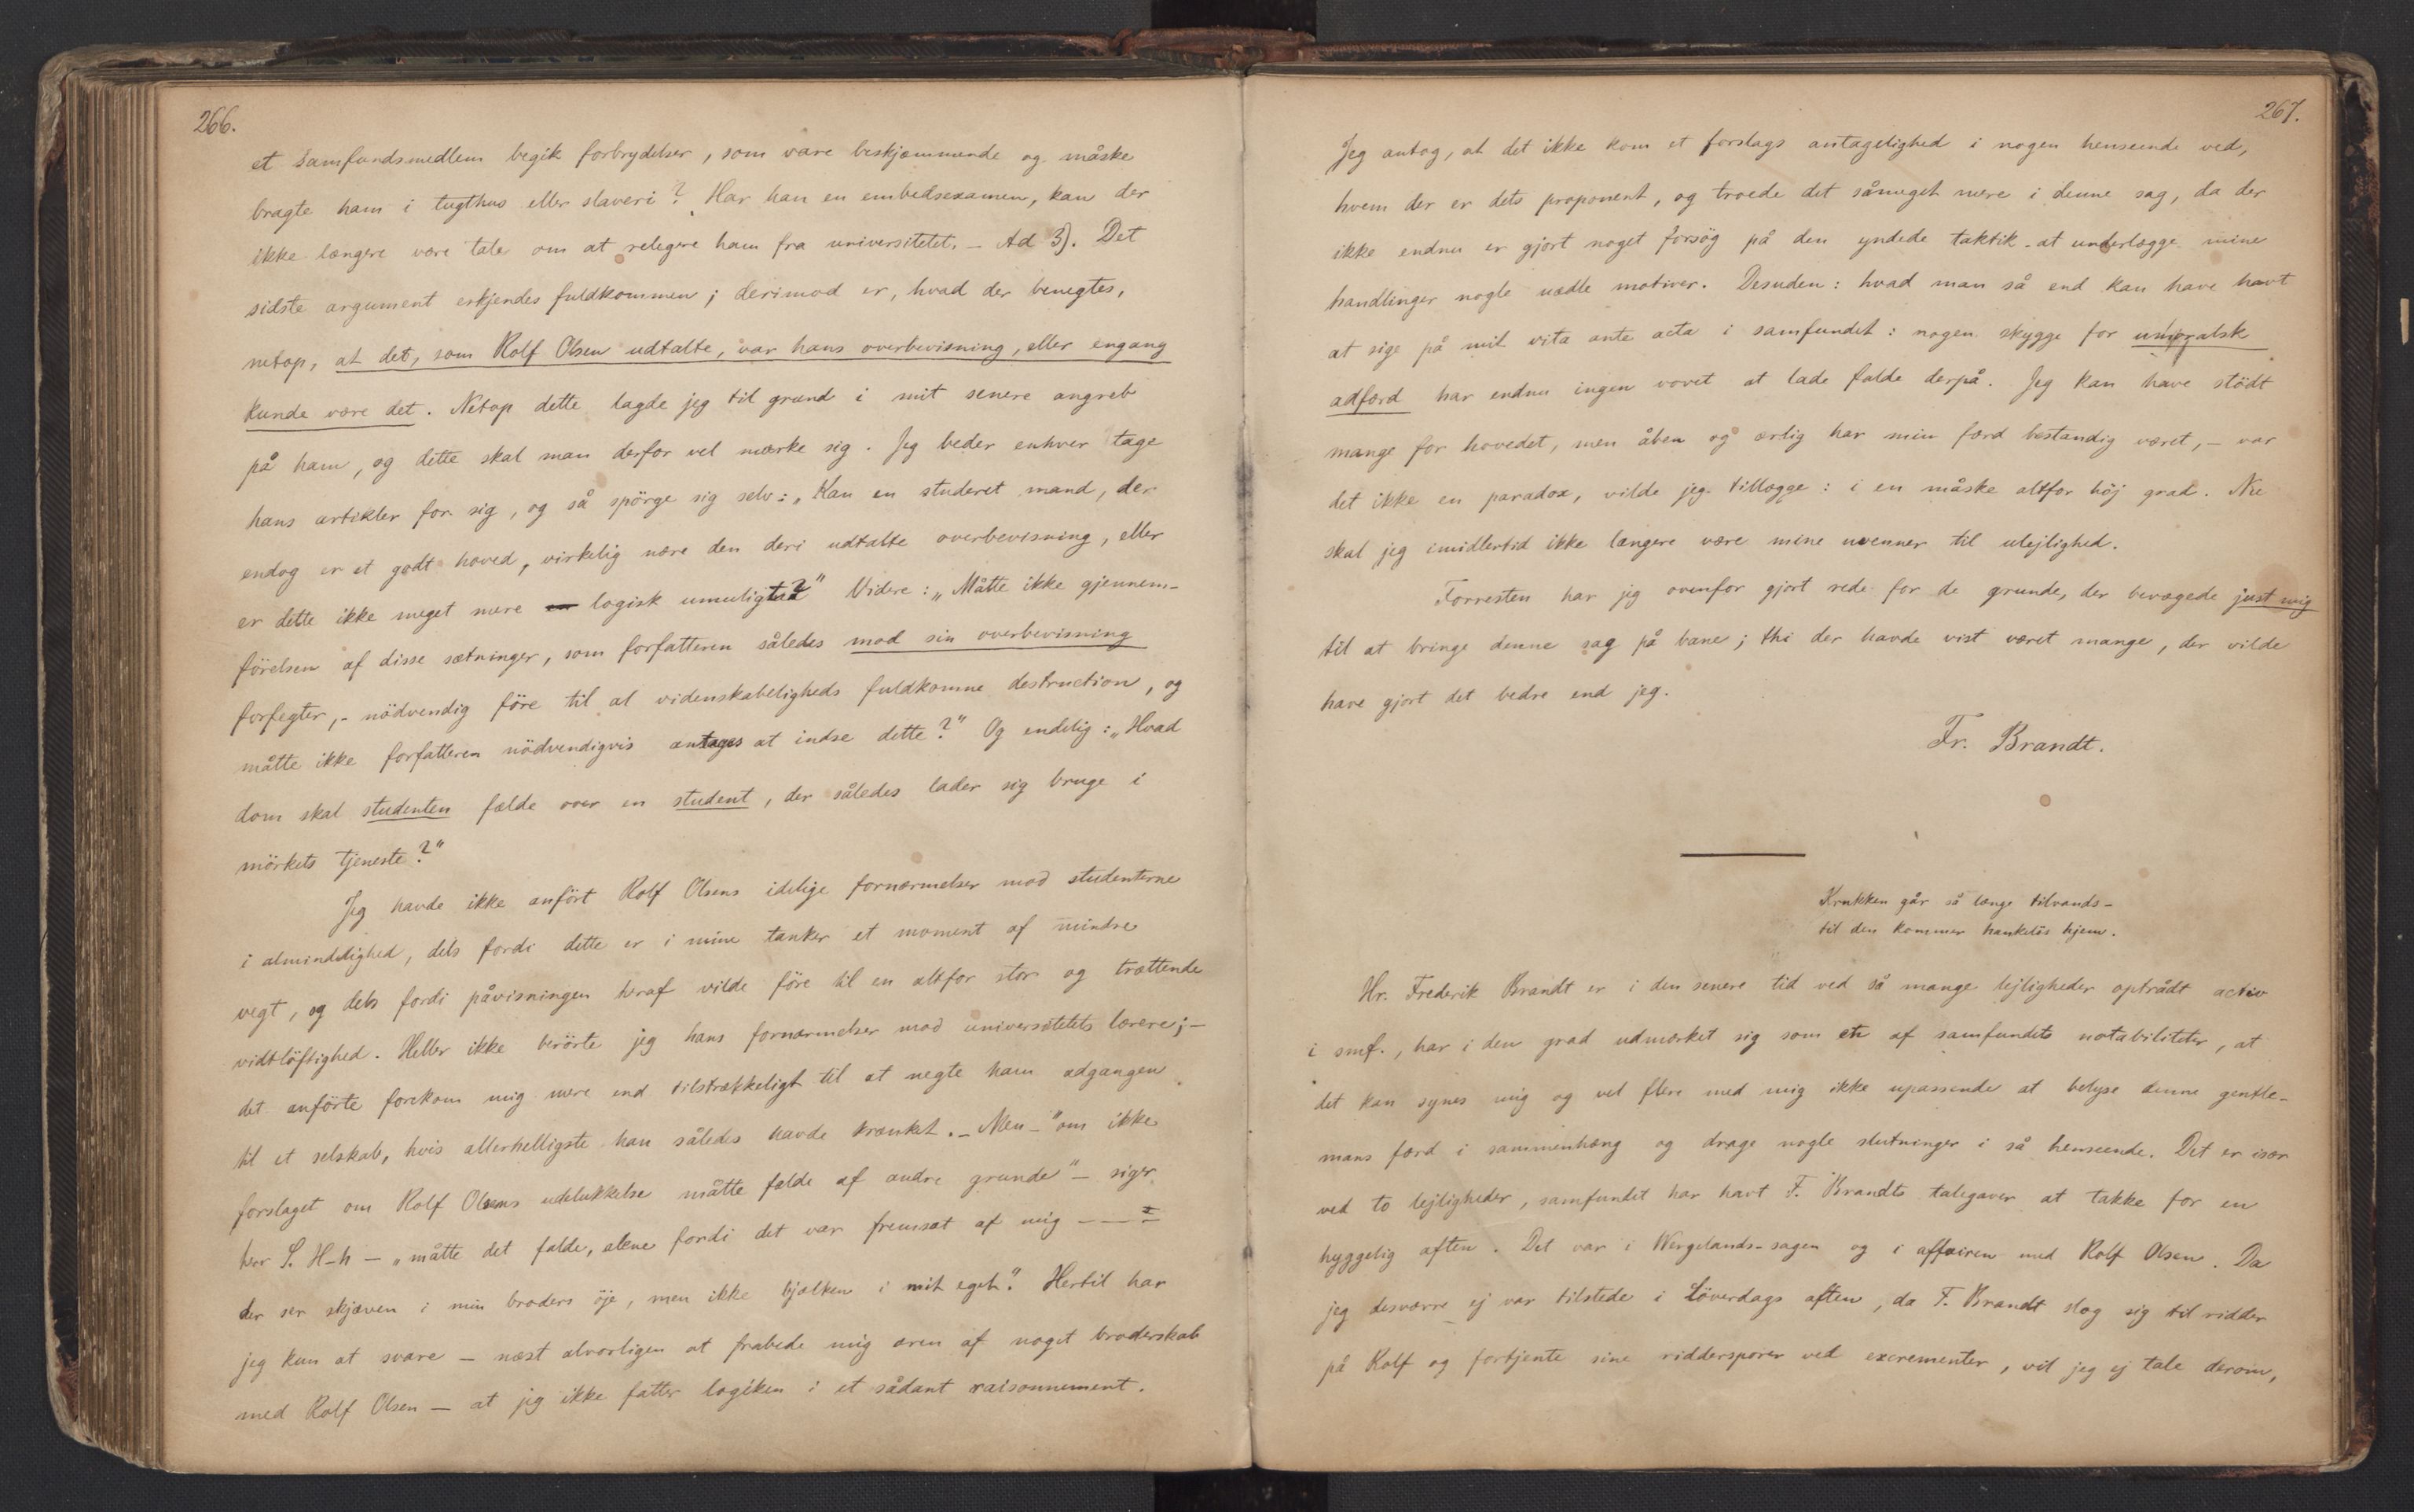 266.
et samfundsmedlem begik forbrydelser, som vare beskjæmmende og måske
bragte ham i tugthus eller slaveri? Har han en embedsexamen, kan der
ikke længere være tale om at relegere ham fra universitetet. – Ad 3). Det
sidste argument erkjendes fuldkommen; derimod er, hvad der benegtes,
netop, at det, som Rolf Olsen udtalte, var hans overbevisning, eller engang
kunde være det. Netop dette lagde jeg til grund i mit senere angreb
på ham, og dette skal man derfor vel mærke sig. Jeg beder enhver tage
hans artikler for sig, og så spörge sig selv: „Kan en studeret mand, der
endog er et godt hoved, virkelig nære den deri udtalte overbevisning, eller
er dette ikke meget mere en logisk umulighed?" Videre: „Måtte ikke gjennem-
förelsen af disse sætninger, som forfatteren således mod sin overbevisning
forfegter, - nödvendig före til al videnskabeligheds fuldkomne destruction, og
måtte ikke forfatteren nödvendigvis antages at indse dette?" Og endelig: „Hvad
dom skal studenten fælde over en student, der således lader sig bruge i
mörkets tjeneste?"
Jeg havde ikke anfört Rolf Olsens idelige fornærmelser mod studenterne
i almindelighed, dels fordi dette er i mine tanker et moment af mindre
vegt, og dels fordi påvisningen heraf vilde före til en altfor stor og trættende
vidtlöftighed. Heller ikke berörte jeg hans fornærmelser mod universitetets lærere; –
det anförte forekom mig mere end tilstrækkeligt til at negte ham adgangen
til et selskab, hvis allerhelligste han således havde krænket. – Men – "om ikke
forslaget om Rolf Olsens udelukkelse måtte falde af andre grunde" – siger
herr S. H–h – „måtte det falde, alene fordi det var fremsat af mig – – –
der ser skjæven i min broders öje, men ikke bjælken i mit eget". Hertil har
jeg kun at svare – næst alvorligen at frabede mig æren af noget broderskab
med Rolf Olsen – at jeg ikke fatter logiken i et sådant raisonnement.
267.
Jeg antog, at det ikke kom et forslags antagelighed i nogen henseende ved,
hvem der er dets proponent, og troede det såmeget mere i denne sag, da der
ikke endnu er gjort noget forsög på den yndede taktik at underlægge mine
handlinger nogle uædle motiver. Desuden: hvad man så end kan have havt
at sige på mit vita ante acta i samfundet: nogen skygge for umoralsk
adfærd har endnu ingen vovet at lade falde derpå. Jeg kan have stödt
mange for hovedet, men åben og ærlig har min færd bestandig været, – var
det ikke en paradox, vilde jeg tillægge: i en måske altfor höj grad. Nu
skal jeg imidlertid ikke længere være mine uvenner til ulejlighed.
Forresten har jeg ovenfor gjort rede for de grunde, der bevægede just mig
til at bringe denne sag på bane; thi der havde vist været mange, der vilde
have gjort det bedre end jeg.
Fr. Brandt.
Krukken går så længe tilvands –
til den kommer hankelös hjem.
Hr. Frederik Brandt er i den senere tid ved så mange lejligheder optrådt activ
i smf., har i den grad udmærket sig som en af samfundets notabiliteter, at
det kan synes mig og vel flere med mig ikke upassende at belyse denne gentle-
mans færd i sammenhæng og drage nogle slutninger i så henseende. Det er især
ved to lejligheder, samfundet har havt F. Brandts talegaver at takke for en
hyggelig aften. Det var i Wergelands-sagen og i affairen med Rolf Olsen. Da
jeg desværre ej var tilstede i Löverdags aften, da F. Brandt slog sig til ridder
på Rolf og fortjente sine riddersporer ved excrementer, vil jeg ej tale derom,